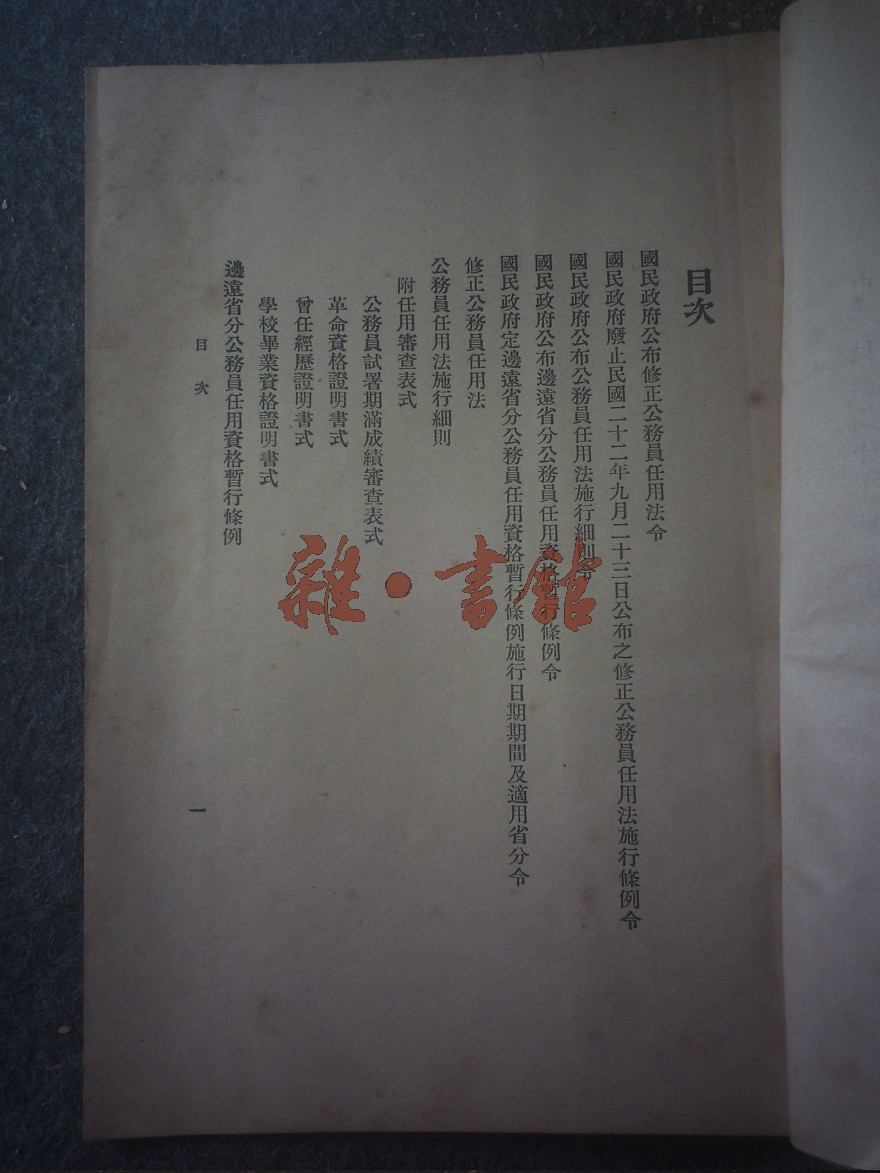 目次
國民政府公布修正公務員任用法令
國民政府廢止民國二十二年九月二十三日公布之修正公務員任用法施行條例令
國民政府公布公務員任用法施行細則令
國民政府公布邊遠省分公務員任用資格暫行條例令
國民政府定邊遠省分公務員任用資格暫行條例施行日期期間及適用省分令
修正公務員任用法
公務員任用法施行細則
附任用審查表式
公務員試署期滿成績審查表式
革命資格證明書式
曾任經歷證明書式
學校畢業資格證明書式
邊遠省分公務員任用資格暫行條例
目次
一
雜·書館